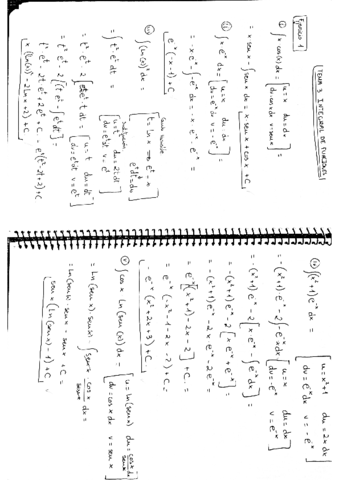 TEMA 3: INTEGRAL DE RIEMANN
EJERCICIO 1
i) ∫ x cos(x) dx = [u = x du = dx
dv = cos x dx v = sen x] =
= x sen x - ∫ sen x dx = x sen x + cos x + C
ii) ∫ x e^-x dx = [u = x du = dx
dv = e^-x dx v = -e^-x] =
= -x e^-x - ∫ -e^-x dx = -x e^-x - e^-x =
e^-x (-x - 1) + C
iii) ∫ (ln(x))² dx = [t = ln x ⇒ e^t = x
e^t dt = dx]
= ∫ t² e^t dt = [u = t² du = 2t dt
dv = e^t dt v = e^t]
= t² e^t - 2 ∫ e^t t dt = [u = t du = dt
dv = e^t dt v = e^t]
= t² e^t - 2 [t e^t - ∫ e^t dt] =
t² e^t - 2t e^t + 2e^t + C = e^t (t² - 2t + 2) + C
x (ln(x)² - 2 ln x + 2) + C
iv) ∫ (x²+1) e^-x dx = [u = x²+1 du = 2x dx
dv = e^-x dx v = -e^-x]
= -(x²+1) e^-x - 2 ∫ -e^-x x dx [u = x du = dx
dv = -e^-x v = e^-x]
= -(x²+1) e^-x - 2 [x e^-x - ∫ e^-x dx] =
= -(x²+1) e^-x - 2 [x e^-x + e^-x] =
= -(x²+1) e^-x - 2x e^-x - 2e^-x =
= e^-x [-(x²+1) - 2x - 2] + C =
= e^-x (-x² - 1 - 2x - 2) + C =
- e^-x (x² + 2x + 3) + C
v) ∫ cos x ln(sen(x)) dx = [u = ln(sen x) du = cos x dx / sen x
dv = cos x dx v = sen x]
= ln(sen x) · sen x - ∫ sen x · cos x / sen x dx =
= ln(sen x) · sen x - sen x + C =
sen x (ln(sen x) - 1) + C